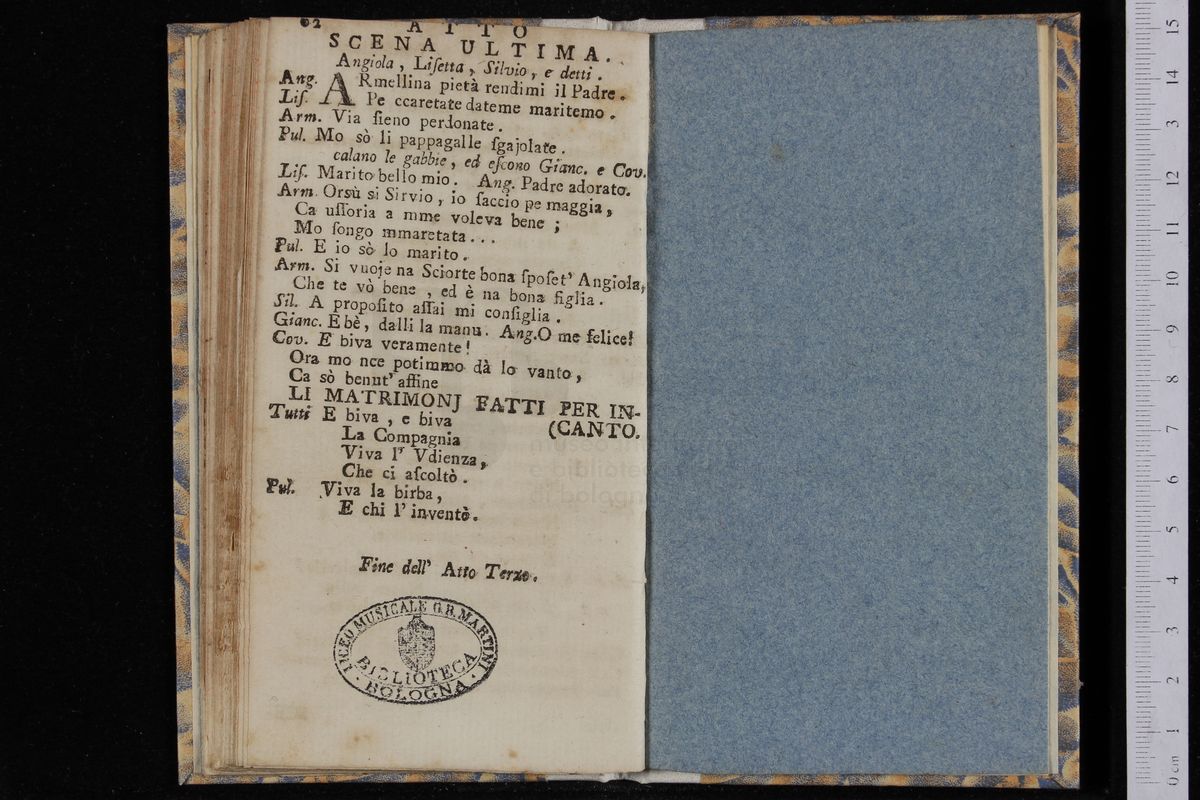 62 ATTO
SCENA ULTIMA.
Angiola, Liſetta, Silvio, e detti.
Ang. ARmellina pietà rendimi il Padre.
Liſ. Pe ccaretate dateme maritemo.
Arm. Via ſieno perdonate.
Pul. Mo sò li pappagalle ſgajolate.
calano le gabbie, ed eſcono Gianc. e Cov.
Liſ. Marito bello mio. Ang. Padre adorato.
Arm. Orsù si Sirvio, io ſaccio pe maggia,
Ca uſſoria a mme voleva bene;
Mo ſongo mmaretata...
Pul. E io sò lo marito.
Arm. Si vuoje na Sciorte bona ſpoſet' Angiola,
Che te vò bene, ed è na bona figlia.
Sil. A propoſito aſſai mi conſiglia.
Gianc. E bè, dalli la manu. Ang. O me felice!
Cov. E biva veramente!
Ora mo nce potimmo dà lo vanto,
Ca sò benut' affine
LI MATRIMONJ FATTI PER IN-
(CANTO.
Tutti E biva, e biva
La Compagnia
Viva l' Vdienza,
Che ci aſcoltò.
Pul. Viva la birba,
E chi l' inventò.
Fine dell' Atto Terzo.
LICEO MUSICALE G.B. MARTINI
BIBLIOTECA
BOLOGNA
museo
e biblioteca
di bologna
0 cm 1 2 3 4 5 6 7 8 9 10 11 12 3 14 15